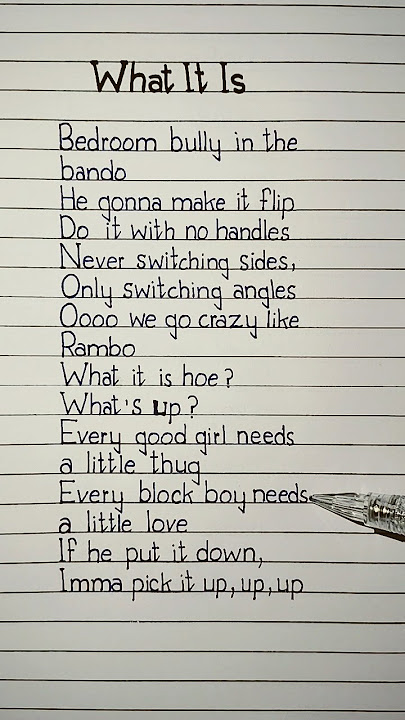 What It Is
Bedroom bully in the
bando
He gonna make it flip
Do it with no handles
Never switching sides,
Only switching angles
Oooo we go crazy like
Rambo
What it is hoe?
What's up?
Every good girl needs
a little thug
Every block boy needs
a little love
If he put it down,
Imma pick it up, up, up